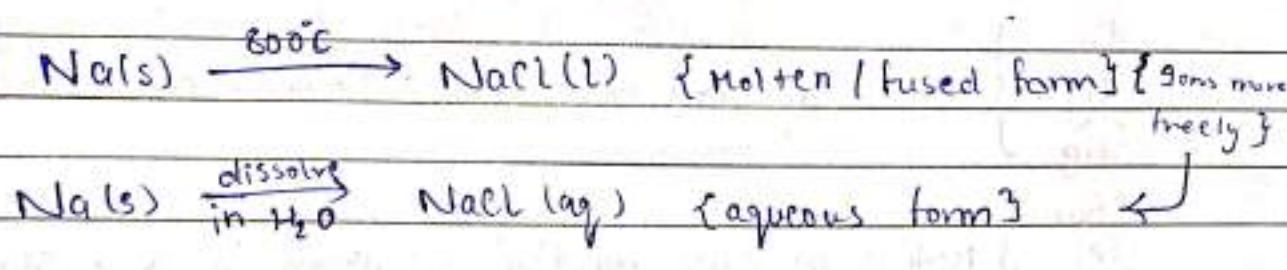 Na(s) 800°C → NaCl(l) {Molten / fused form} {Ions move freely}
Na(s) dissolve in H₂O → NaCl (aq) {aqueous form} ↵